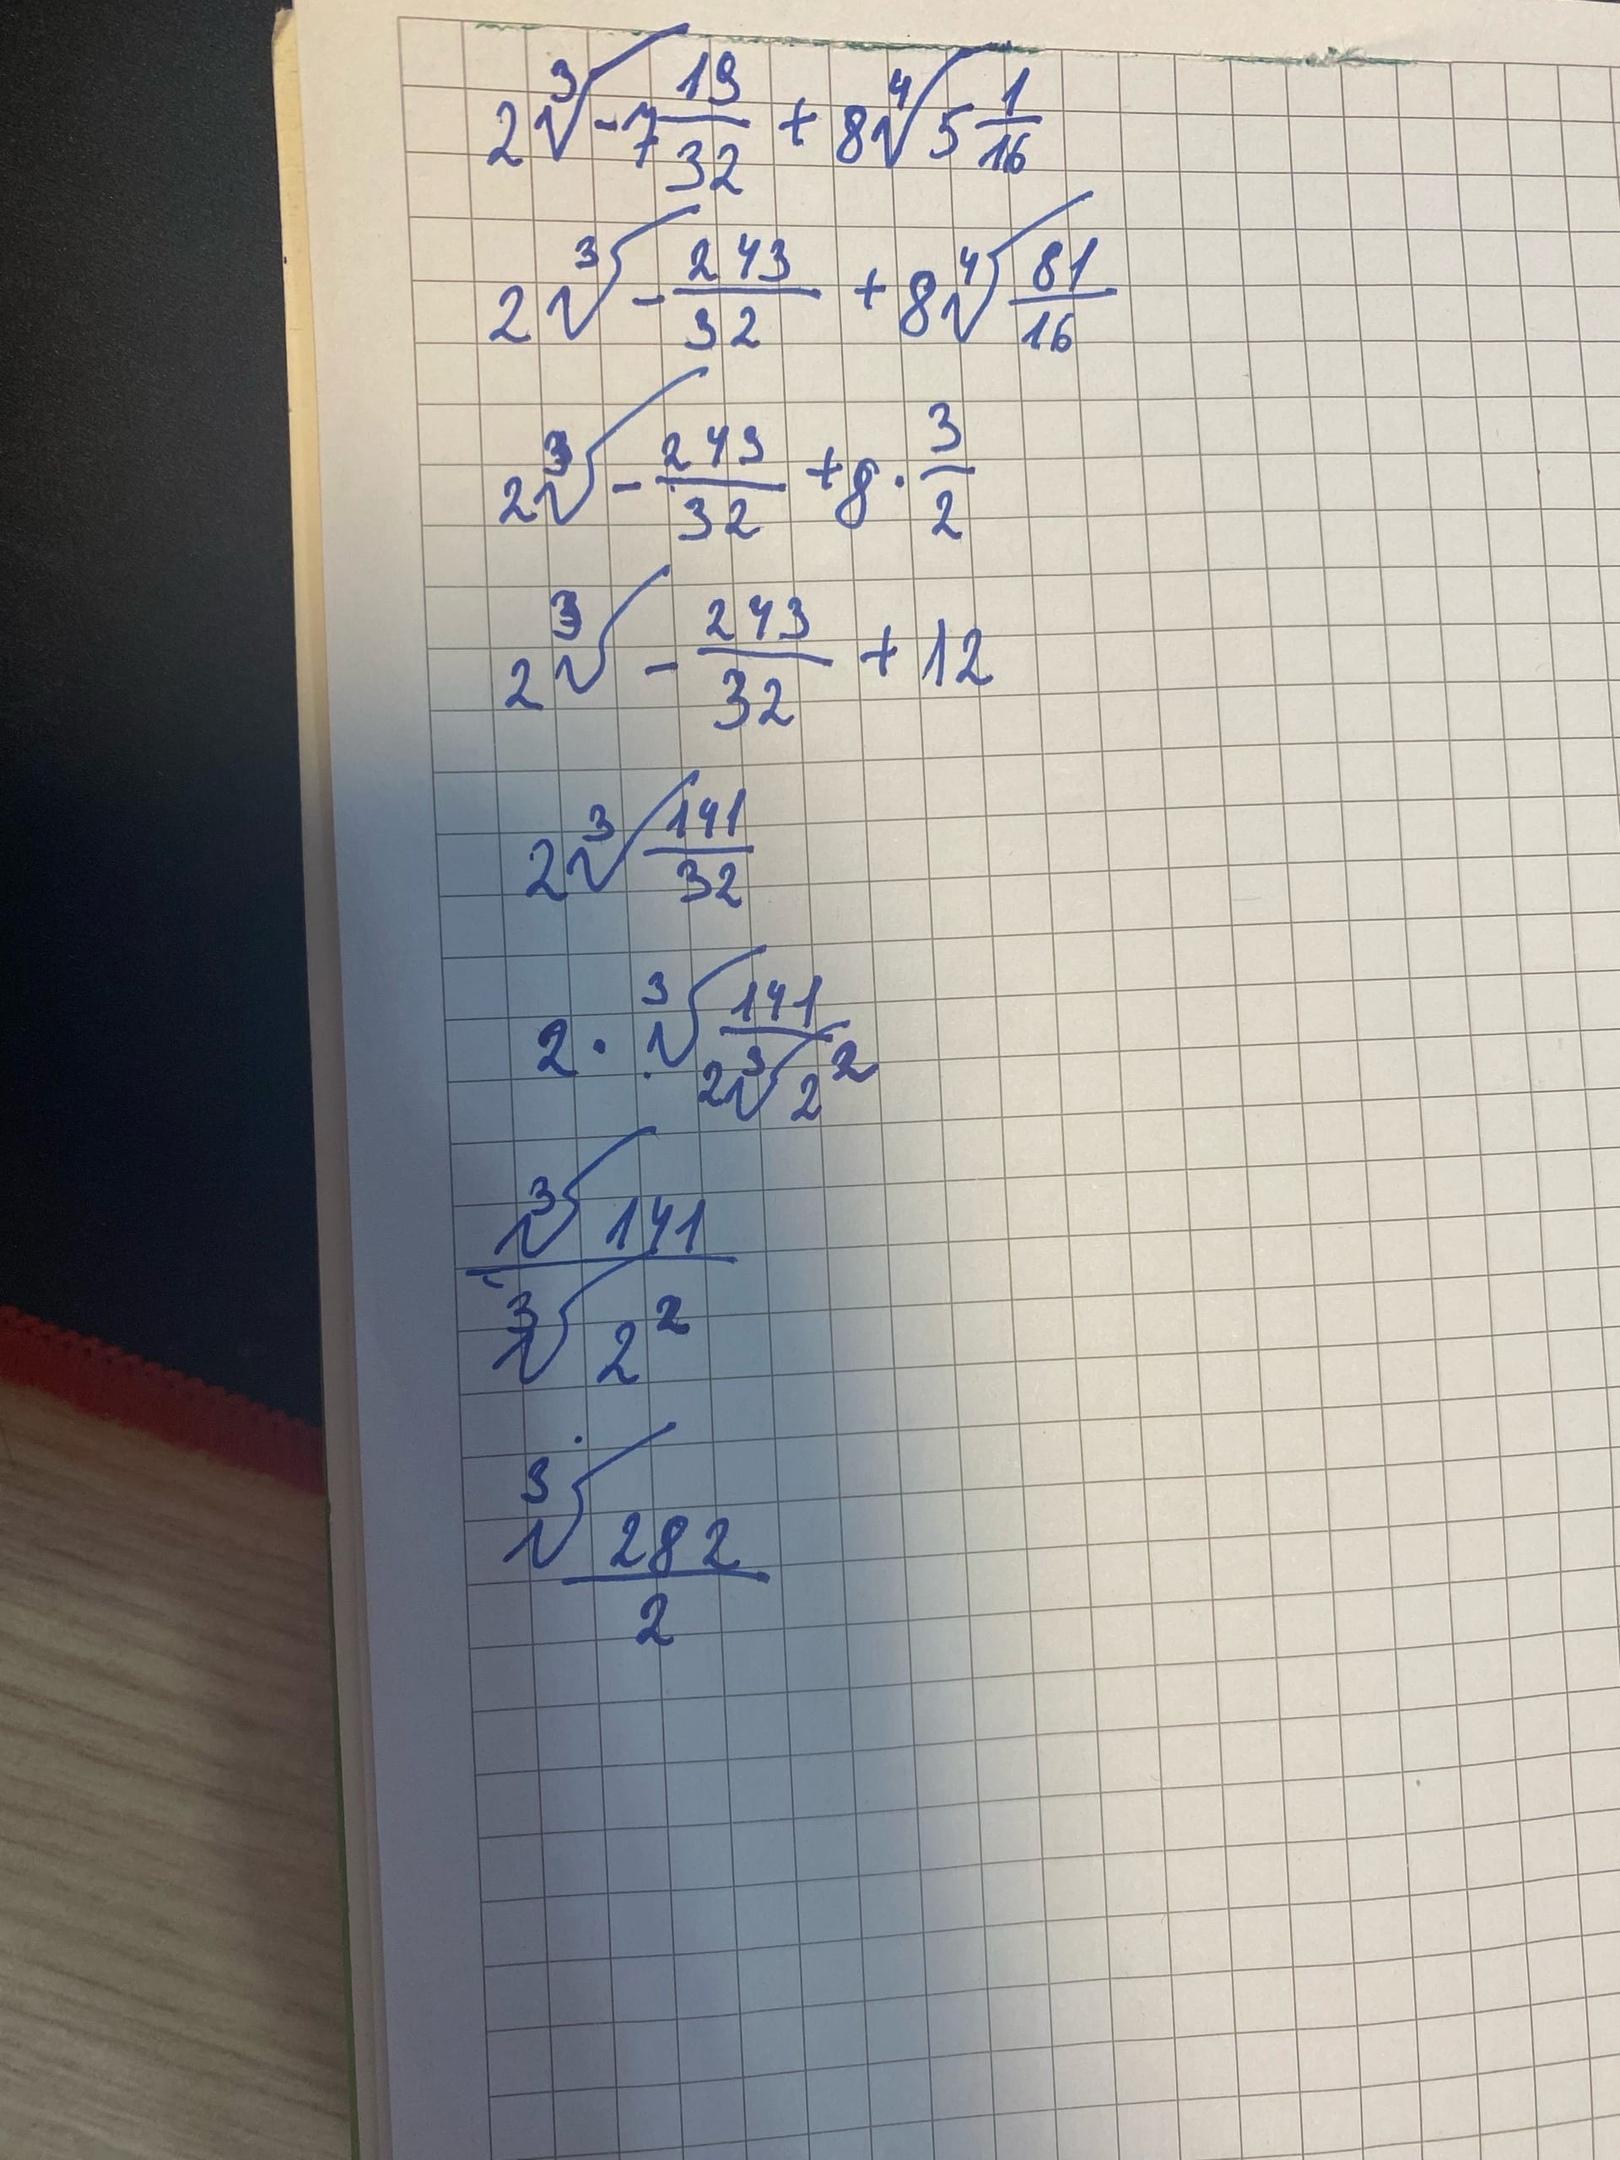 2∛-7 19/32 + 8∜5 1/16
2∛-243/32 + 8∜81/16
2∛-243/32 + 8 · 3/2
2∛-243/32 + 12
2∛141/32
2 · ∛141/2∛2²
∛141/∛2²
∛282/2